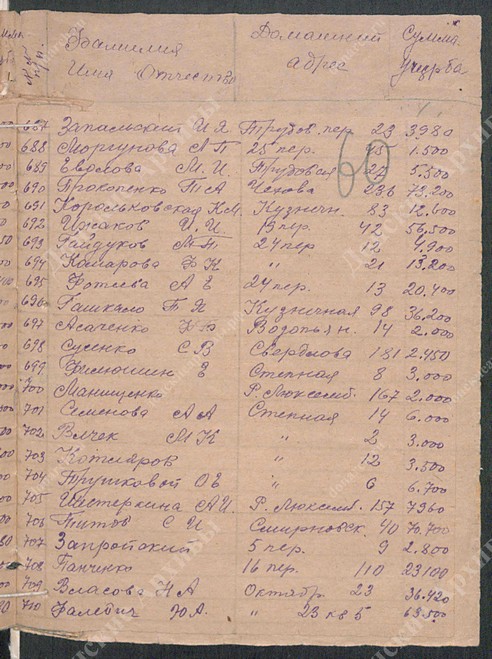 №№ п.п. Фамилия Имя Отчество Домашний адрес Сумма ущерба
60
687 Запальский И Я Трудов. пер. 23 3980
688 Моргунова А П 25 пер. 15 1.500
689 М. И. Трудовая 27 5.500
690 Прокопенко Т А Чехова 236 73.200
691 Корольковская К.М. Кузнечн. 83 12.600
692 Ижаков И. И. 19 пер. 42 56,500
693 Гайдуков М П 24 пер 12 4.900
694 Комарова " 21 13,200
695 Фотиева А Е 24 пер. 13 20.400
696 Гашкяло П Я Кузнечная 98 36,200
697 Асаченко Водопьян. 14 2.000
698 Сусенко С В Свердлова 181 2.450
699 Степная 8 3.000
700 Манищенко Р. Люксемб. 167 2.000
701 Семенова А А Степная 14 6.000
702 Влчек М К " 2 3.000
703 Котляров " 12 3.500
704 О Е " 6 6.700
705 Шестеркина А И Р. Люксемб. 157 7960
706 Титов С И Смирновск. 40 70,700
707 5 пер. 9 2.800
708 Панченко 16 пер. 110 23100
709 Власова Н А Октябр. 23 36.420
710 Фалевич Ю А. " 23 кв 5 63.500